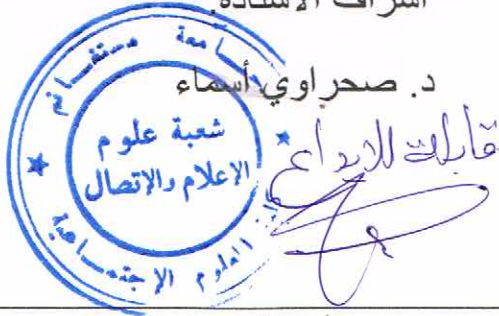 اشراف الأستاذة:
د. صحراوي أسماء
جامعة مستغانم
شعبة علوم
الإعلام والإتصال
العلوم الإجتماعية
قابلة للايداع